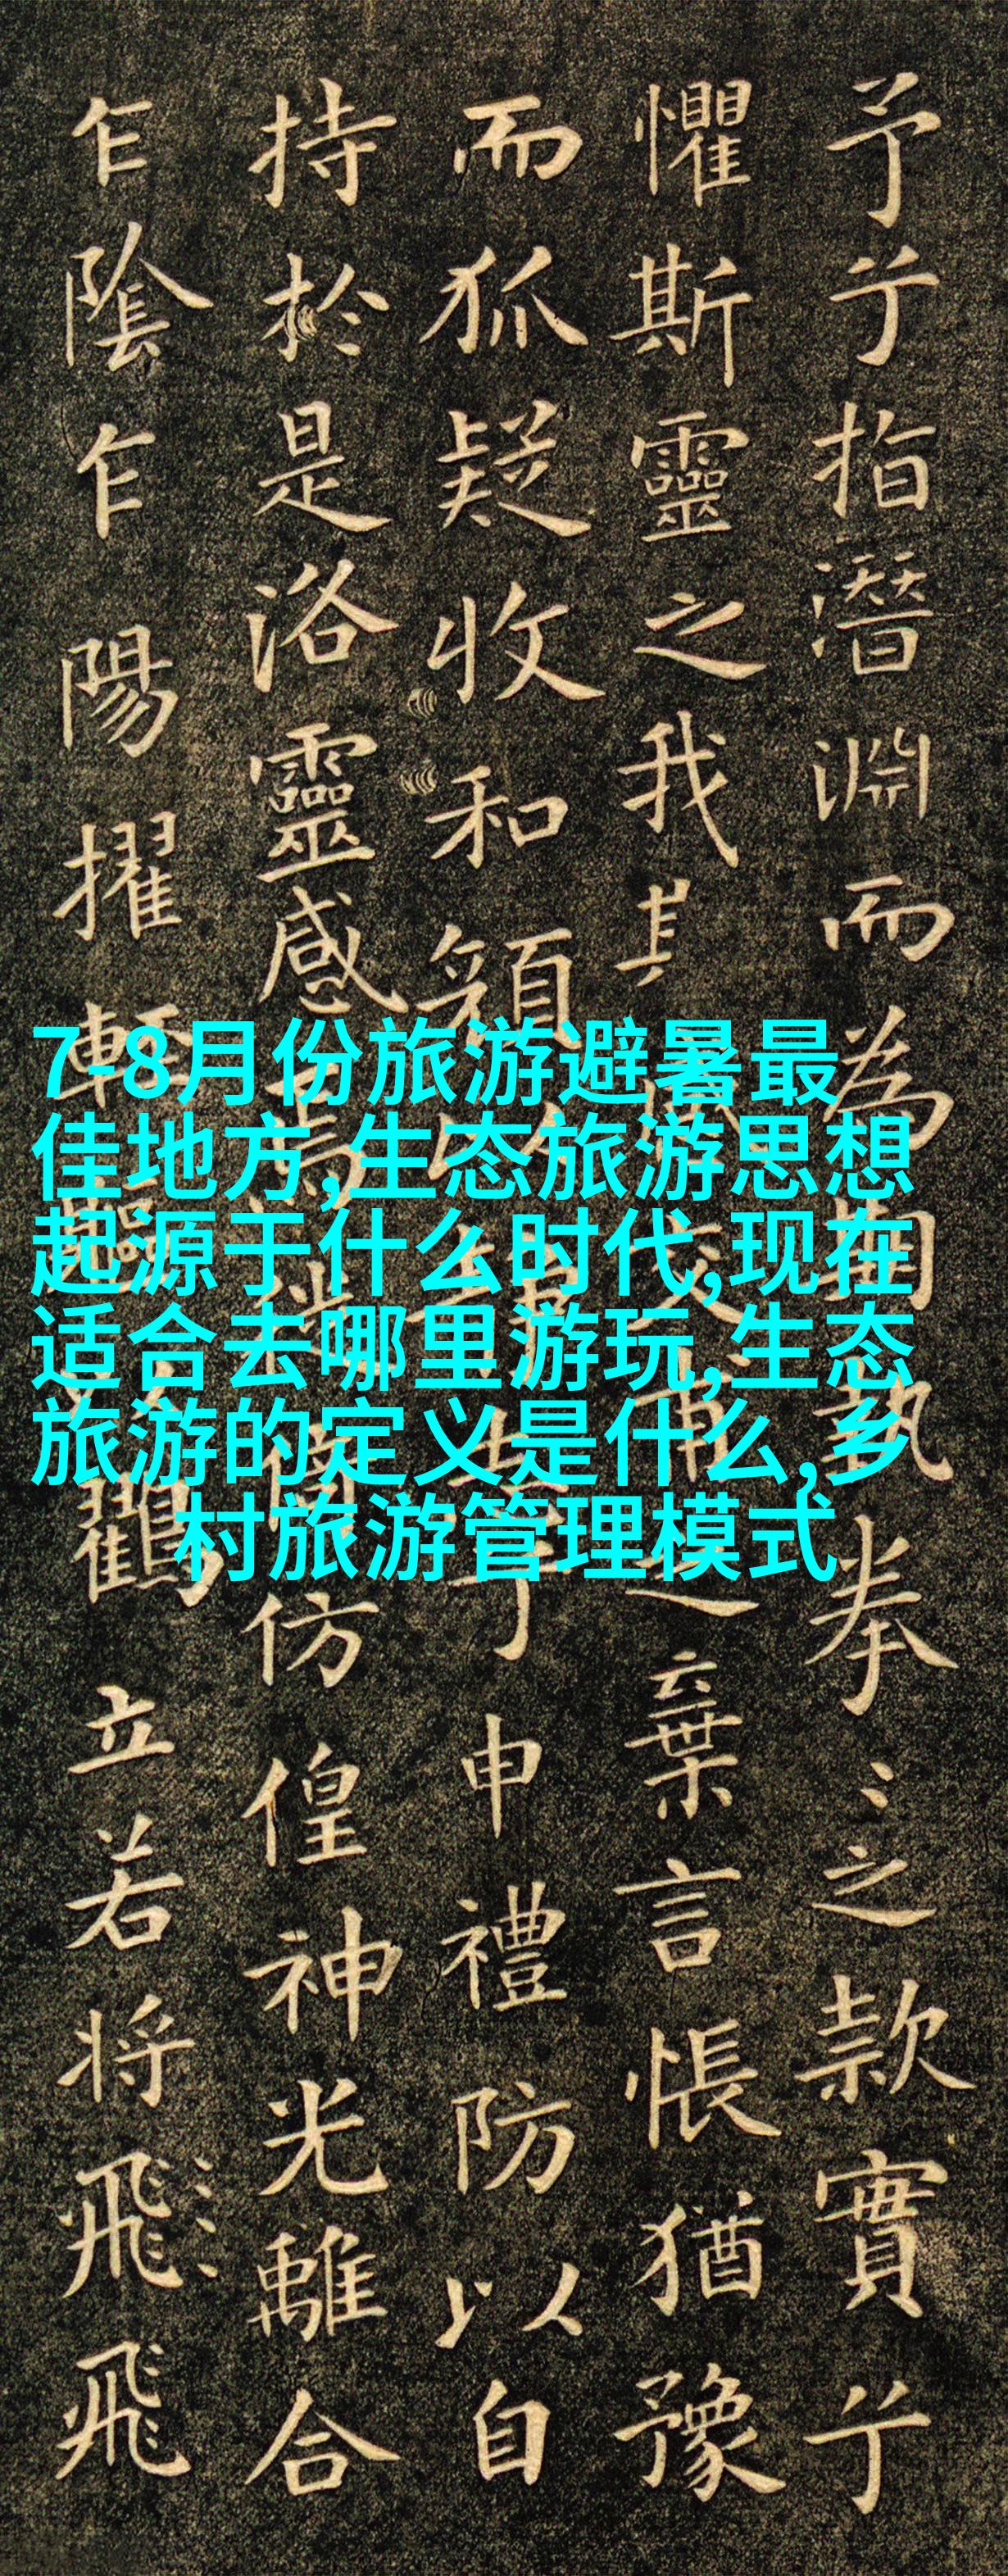 予兮指潛淵而為執拳〻之款實兮
懼斯靈之我交甫之棄言悵猶豫
而狐疑收和顏兮申禮防以自
持於是洛靈感焉仿偟神光離合
乍陰乍陽擢輕軀鶴立若将飛飛
7-8月份旅游避暑最
佳地方,生态旅游思想
起源于什么时代,现在
适合去哪里游玩,生态
旅游的定义是什么,乡
村旅游管理模式